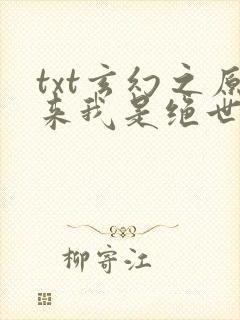 txt玄幻之原
来我是绝世
柳寄江